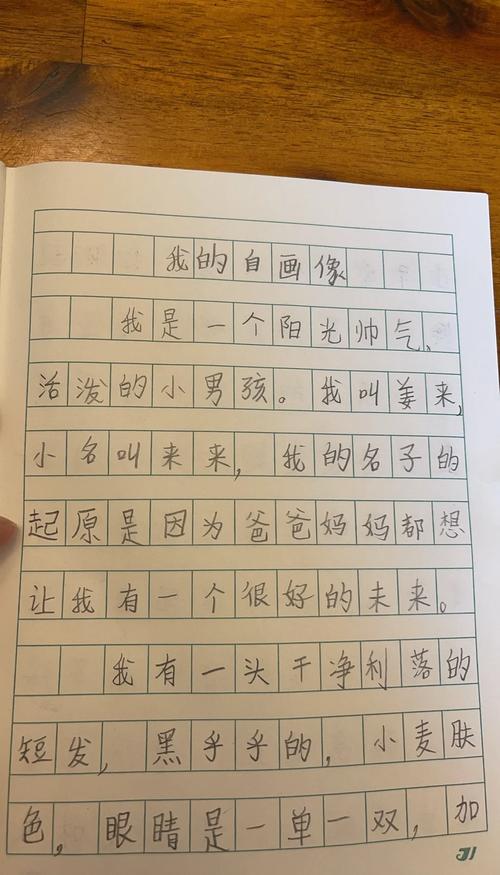 我的自画像
我是一个阳光帅气、
活泼的小男孩。我叫姜来,
小名叫来来,我的名子的
起原是因为爸爸妈妈都想
让我有一个很好的未来。
我有一头干净利落的
短发,黑乎乎的,小麦肤
色,眼睛是一单一双,加